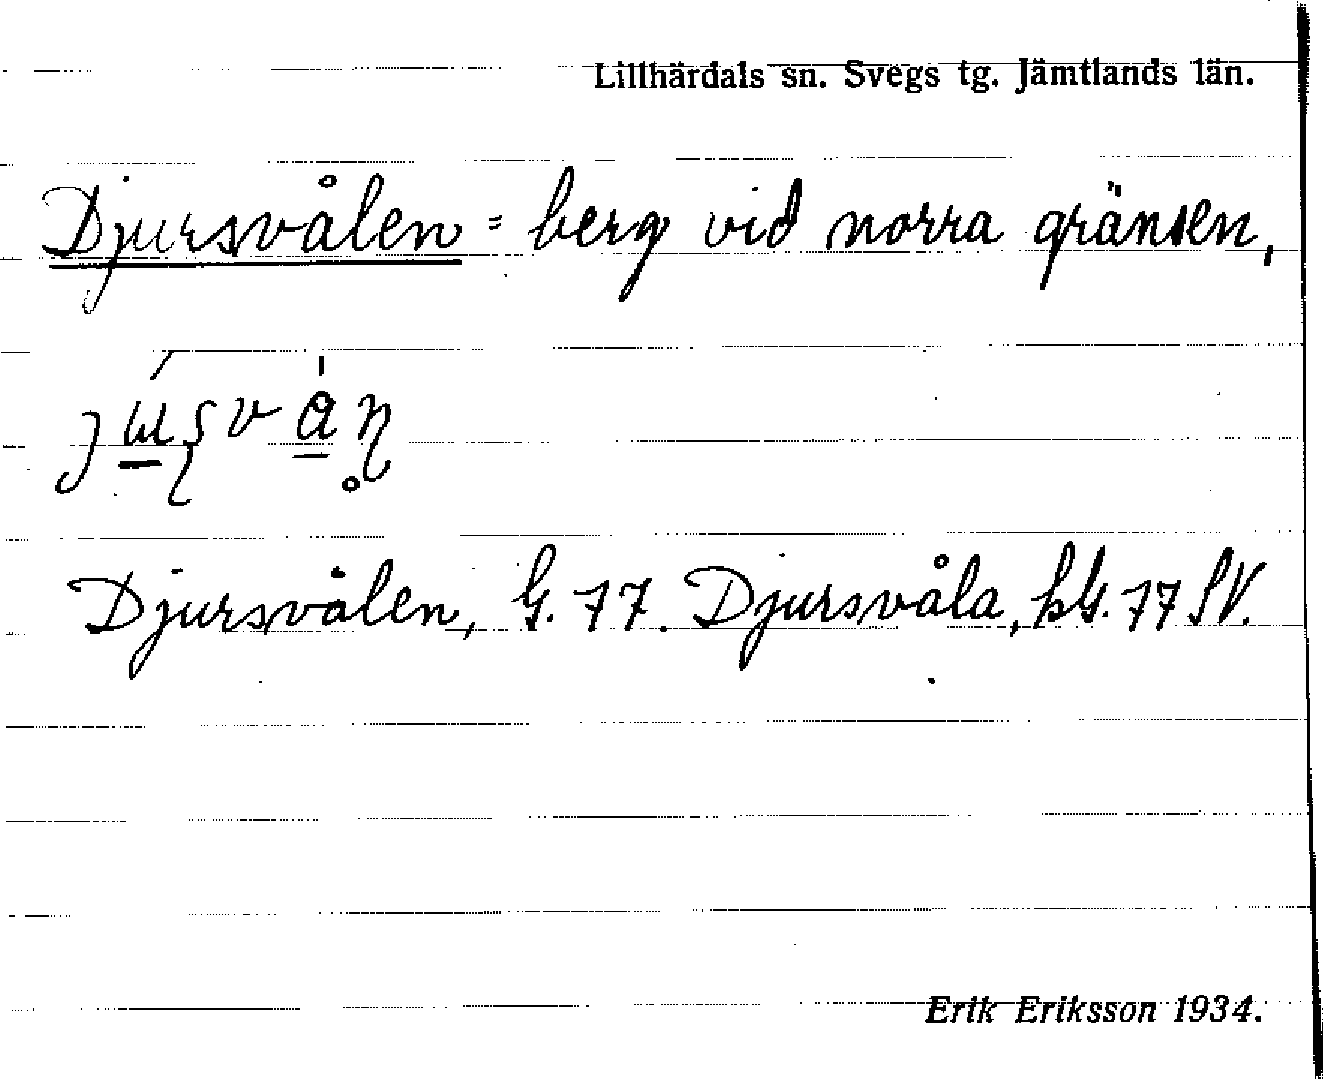 Lillhärdals sn. Svegs tg. Jämtlands län.
Djursvålen = berg vid norra gränsen,
Djursvålen, G. 77. Djursvåla, hG. 77 SV.
Erik Eriksson 1934.